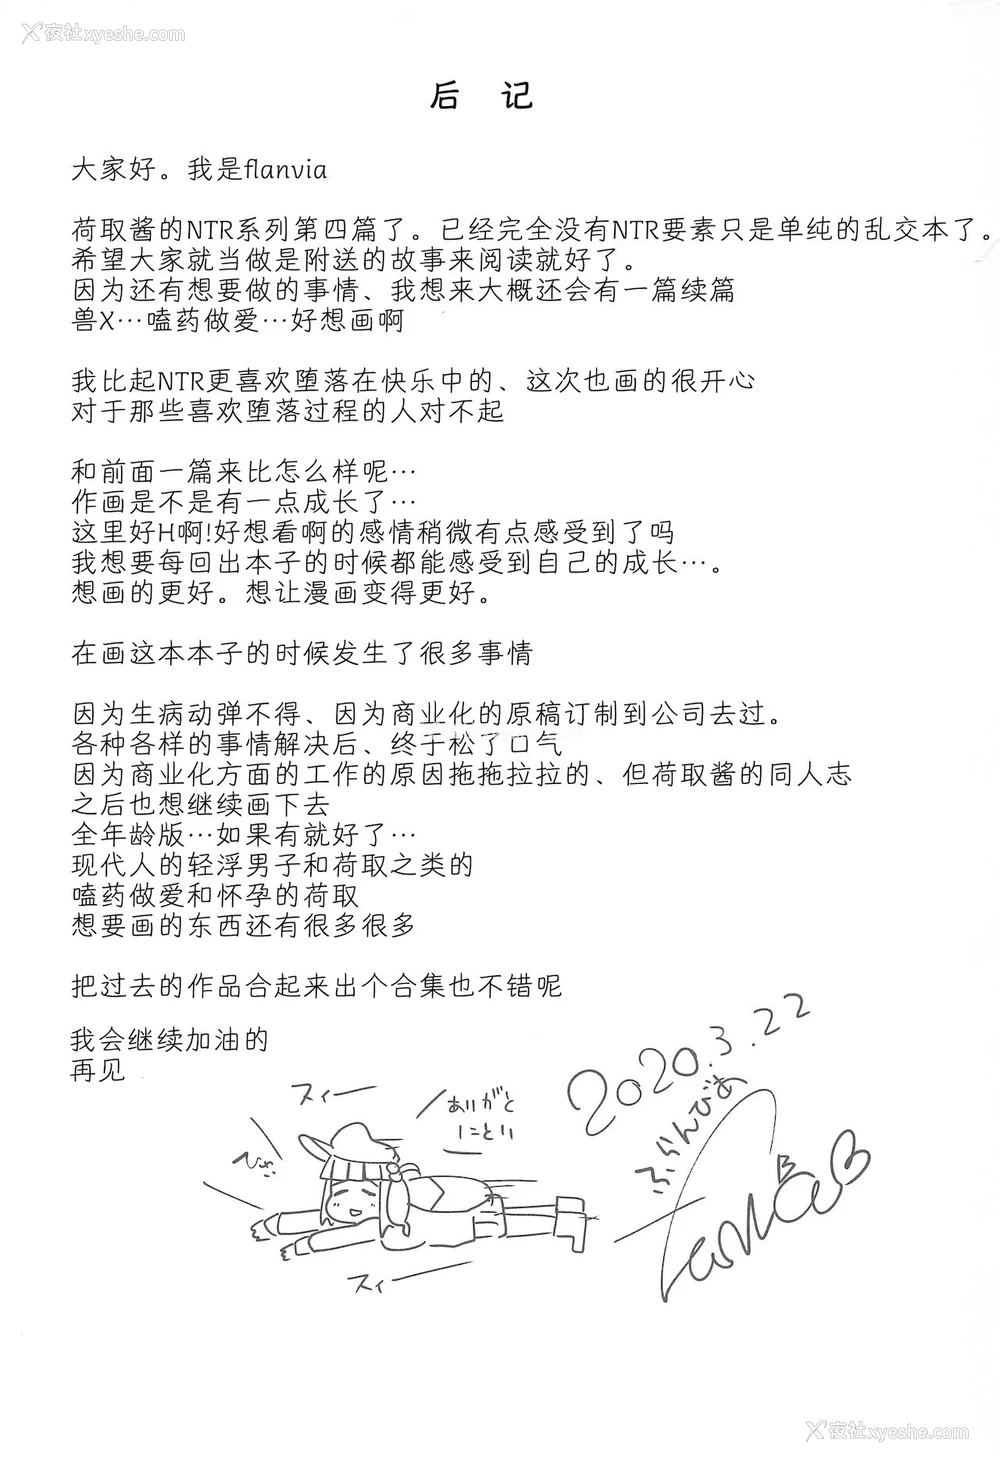 夜社xyeshe.com
后 记
大家好。我是flanvia
荷取酱的NTR系列第四篇了。已经完全没有NTR要素只是单纯的乱交本了。
希望大家就当做是附送的故事来阅读就好了。
因为还有想要做的事情、我想来大概还会有一篇续篇
兽X…嗑药做爱…好想画啊
我比起NTR更喜欢堕落在快乐中的、这次也画的很开心
对于那些喜欢堕落过程的人对不起
和前面一篇来比怎么样呢…
作画是不是有一点成长了…
这里好H啊!好想看啊的感情稍微有点感受到了吗
我想要每回出本子的时候都能感受到自己的成长…。
想画的更好。想让漫画变得更好。
在画这本本子的时候发生了很多事情
因为生病动弹不得、因为商业化的原稿订制到公司去过。
各种各样的事情解决后、终于松了口气
因为商业化方面的工作的原因拖拖拉拉的、但荷取酱的同人志
之后也想继续画下去
全年龄版…如果有就好了…
现代人的轻浮男子和荷取之类的
嗑药做爱和怀孕的荷取
想要画的东西还有很多很多
把过去的作品合起来出个合集也不错呢
我会继续加油的
再见
2020.3.22
ふらんびあ
スィー
ありがと
にとり
スィー
夜社xyeshe.com